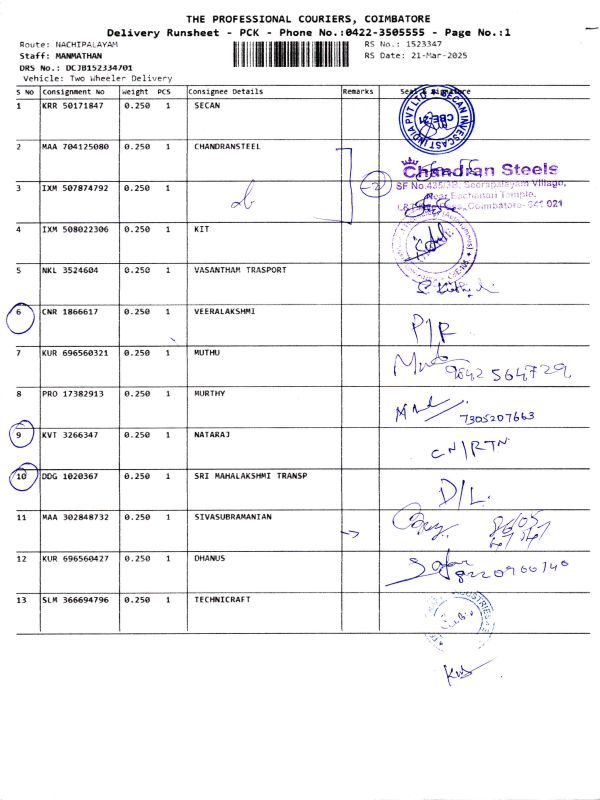 THE PROFESSIONAL COURIERS, COIMBATORE
Delivery Runsheet - PCK - Phone No.:0422-3505555 - Page No.:1
Route: NACHIPALAYAM RS No.: 1523347
Staff: MANMATHAN RS Date: 21-Mar-2025
DRS No.: DCJB152334701
Vehicle: Two Wheeler Delivery
S No Consignment No Weight PCS Consignee Details Remarks Seal & Signature
1 KRR 50171847 0.250 1 SECAN
SECAN INVESCAST INDIA PVT LTD CBE-21
2 MAA 704125080 0.250 1 CHANDRANSTEEL
Chandran Steels
3 IXM 507874792 0.250 1 2 SF No.435/3B, Seerapalayam Village,
Near Eachanari Temple,
Coimbatore- 641 021
4 IXM 508022306 0.250 1 KIT
5 NKL 3524604 0.250 1 VASANTHAM TRASPORT
6 CNR 1866617 0.250 1 VEERALAKSHMI P/R
7 KUR 696560321 0.250 1 MUTHU 9842 564729
8 PRO 17382913 0.250 1 MURTHY 7305207663
9 KVT 3266347 0.250 1 NATARAJ CN/RTN
10 DDG 1020367 0.250 1 SRI MAHALAKSHMI TRANSP D/L.
11 MAA 302848732 0.250 1 SIVASUBRAMANIAN
12 KUR 696560427 0.250 1 DHANUS
13 SLM 366694796 0.250 1 TECHNICRAFT